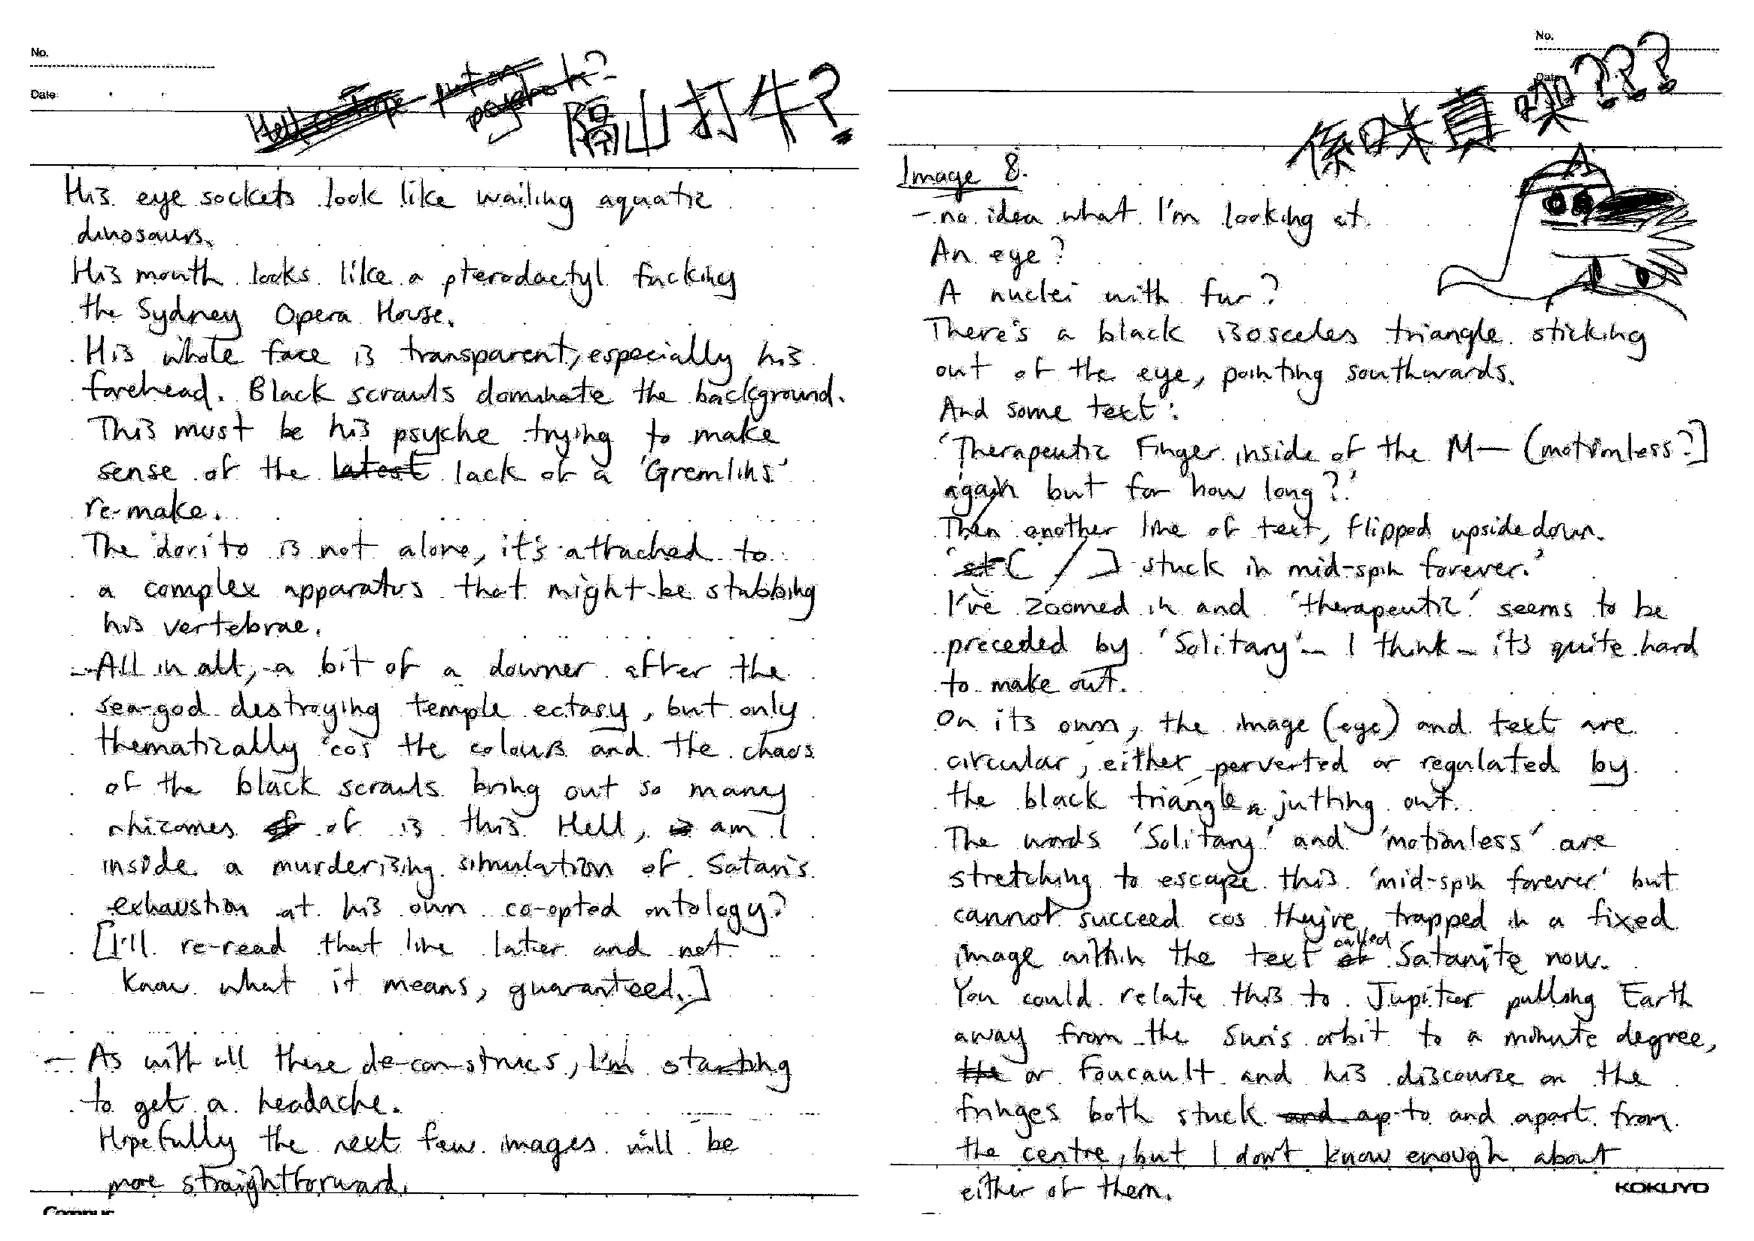 No.
Date
隔山打牛?
His eye sockets look like wailing aquatic
dinosaurs.
His mouth looks like a pterodactyl fucking
the Sydney Opera House.
His whole face is transparent, especially his
forehead. Black scrawls dominate the background.
This must be his psyche trying to make
sense of the latest lack of a 'Gremlins'
re-make.
The dorito is not alone, it's attached to
a complex apparatus that might be stubbing
his vertebrae.
- All in all, a bit of a downer after the
sea-god destroying temple ectasy, but only
thematically 'cos the colours and the chaos
of the black scrawls bring out so many
rhizomes of of is this Hell, am I
inside a murderising simulation of Satan's
exhaustion at his own co-opted ontology?
[I'll re-read that line later and not
know what it means, guaranteed.]
- As with all these de-con-strucs, I'm starting
to get a headache.
Hopefully the next few images will be
more straightforward.
Campus
No.
Date
係咪真㗎???
Image 8.
- no idea what I'm looking at.
An eye?
A nuclei with fur?
There's a black isosceles triangle sticking
out of the eye, pointing southwards.
And some text:
'Therapeutic Finger inside of the M— (motionless?]
again but for how long?'
Then another line of text, flipped upside down.
'st [ / ] stuck in mid-spin forever.'
I've zoomed in and 'therapeutic' seems to be
preceded by 'Solitary' - I think - it's quite hard
to make out.
On its own, the image (eye) and text are
circular, either perverted or regulated by
the black triangle jutting out.
The words 'Solitary' and 'motionless' are
stretching to escape this 'mid-spin forever' but
cannot succeed cos they're trapped in a fixed
image within the text called Satanite now.
You could relate this to Jupiter pulling Earth
away from the Sun's orbit to a minute degree,
the or Foucault and his discourse on the
fringes both stuck and ap to and apart from
the centre, but I don't know enough about
either of them.
KOKUYO